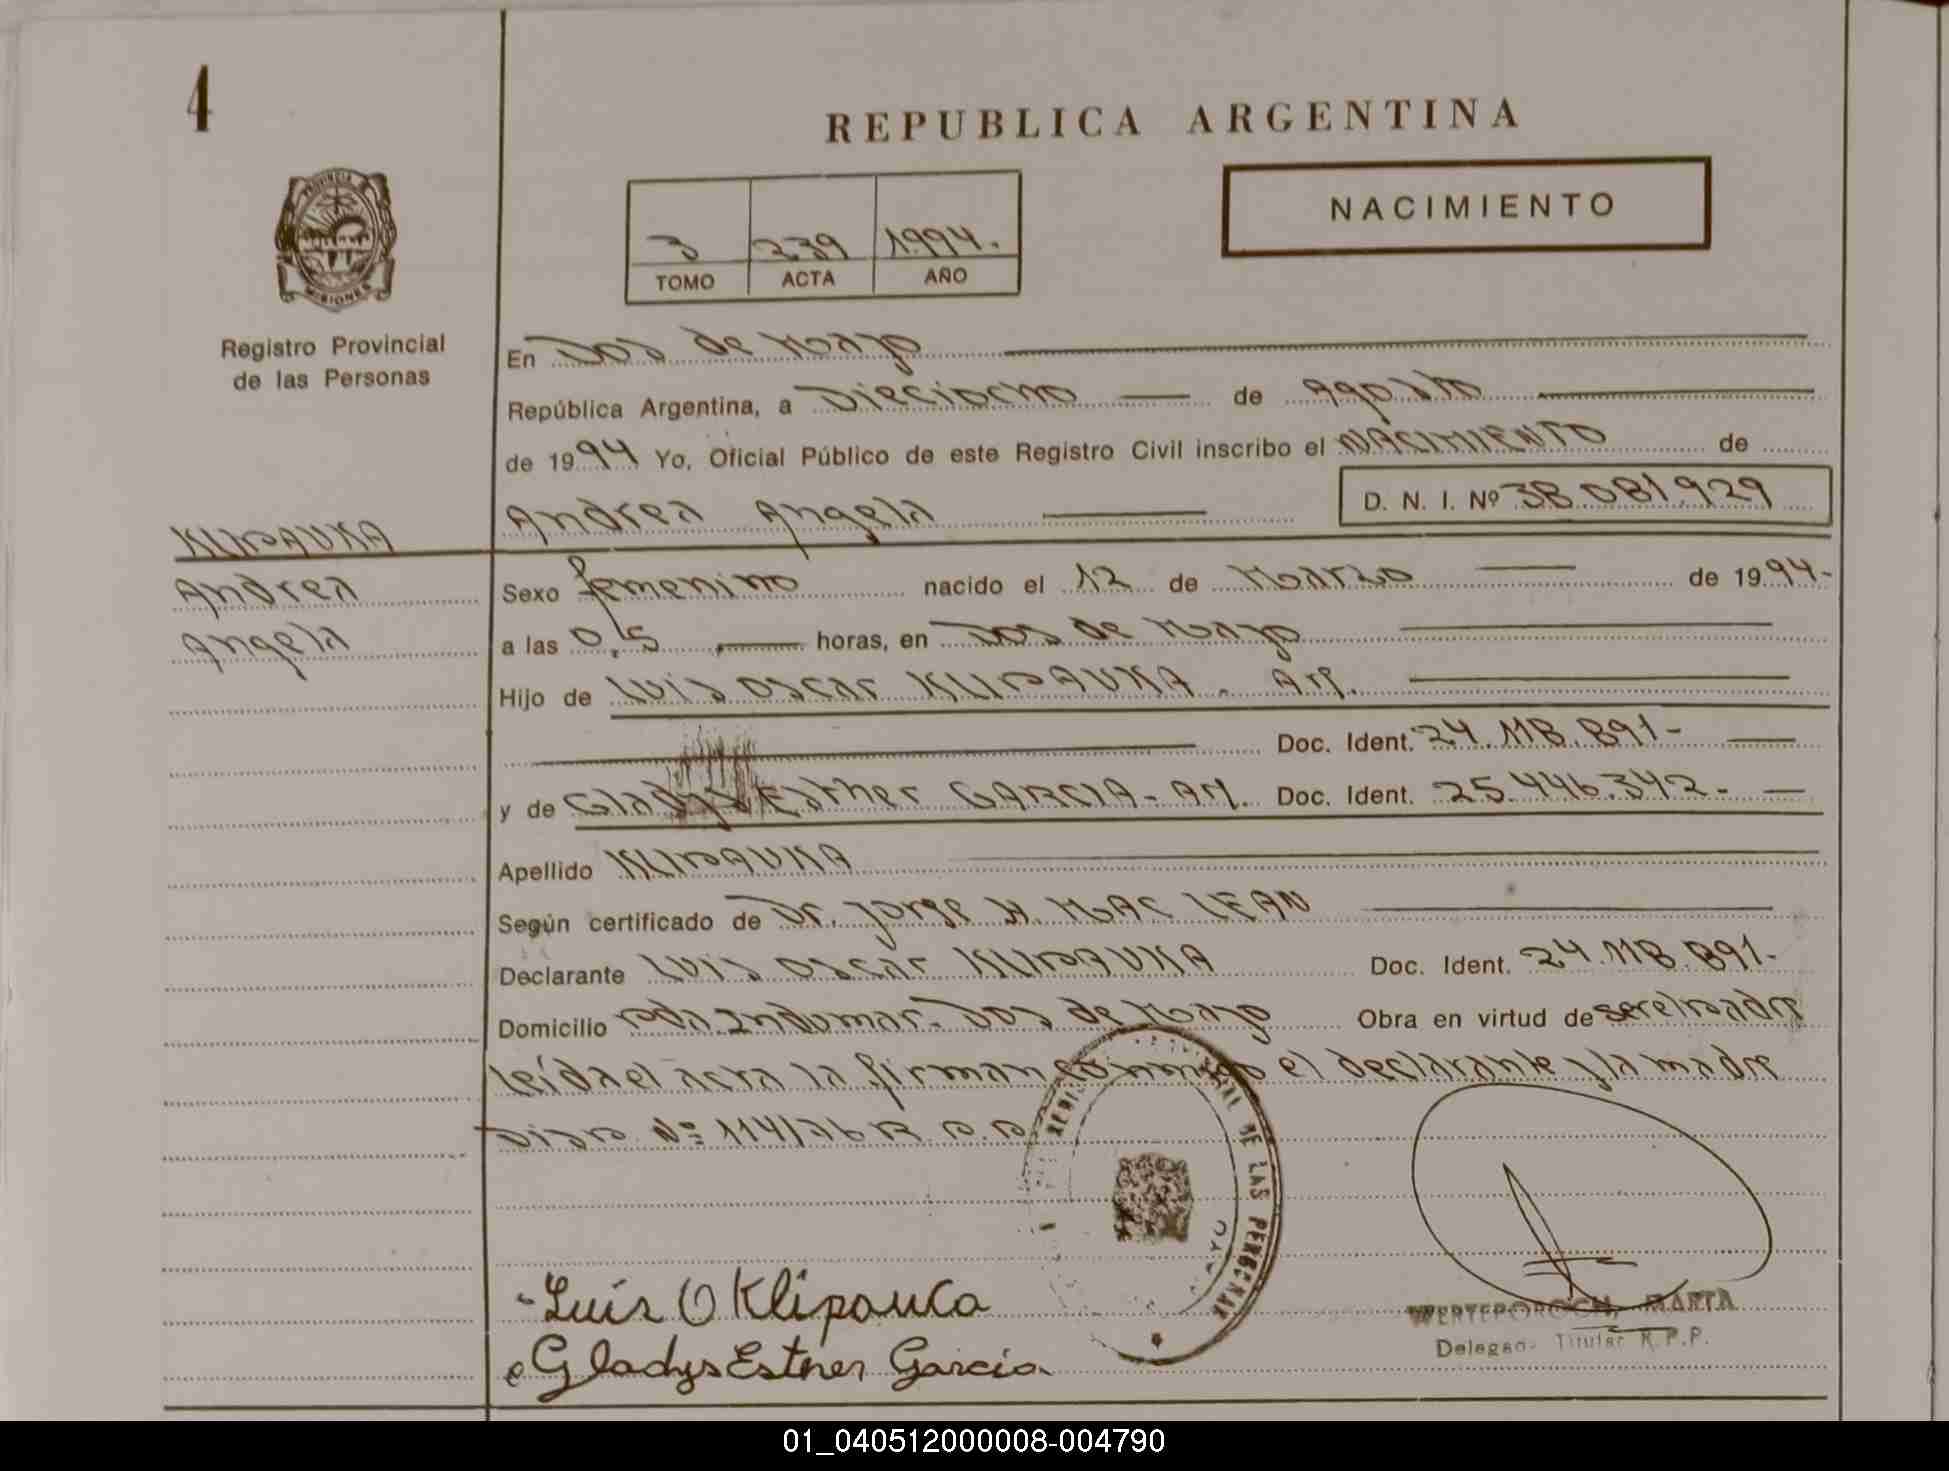 4
REPUBLICA ARGENTINA
NACIMIENTO
PROVINCIA
MISIONES
3 239 1994.
TOMO ACTA AÑO
Registro Provincial
de las Personas
En Dos de Mayo
República Argentina, a Dieciocho de Agosto
de 1994 Yo, Oficial Público de este Registro Civil inscribo el NACIMIENTO de
Andrea Angela D. N. I. Nº 38.081.929
KLIPAUKA
Andrea
Angela
Sexo femenino nacido el 12 de Marzo de 1994-
a las 0,5 horas, en Dos de Mayo
Hijo de Luis Oscar KLIPAUKA. Arg.
Doc. Ident. 24.118.891-
y de Gladys Esther GARCIA-Arg. Doc. Ident. 25.446.342-
Apellido KLIPAUKA
Según certificado de Dr. Jorge H. MAC LEAN
Declarante Luis Oscar KLIPAUKA Doc. Ident. 24.118.891-
Domicilio Dos de Mayo Obra en virtud de ser el padre
leída el acta la firman conmigo el declarante y la madre
Disp. Nº 114/76 R.P.P.
DE LAS PERSONAS
Luis O Klipauka
Gladys Esther Garcia
WERTEPOROCH, MARTA
Titular R.P.P.
01_040512000008-004790